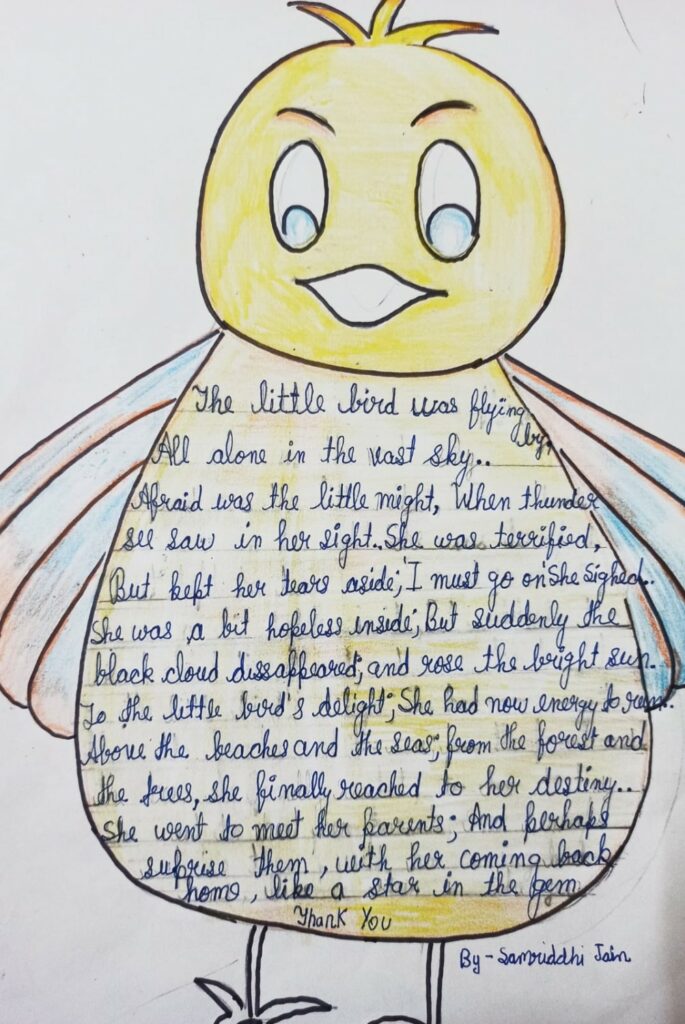 The little bird was flying
by,
All alone in the vast sky..
Afraid was the little might, When thunder
see saw in her sight. She was terrified,
But kept her tears aside; 'I must go on' She Sighed..
She was a bit hopeless inside; But suddenly the
black cloud dissappeared; and rose the bright sun..
To the little bird's delight; She had now energy to run..
Above the beaches and the seas; from the forest and
the trees, she finally reached to her destiny..
She went to meet her parents; And perhaps
suprise them, with her coming back
home, like a star in the gem
Thank You
By - Samriddhi Jain